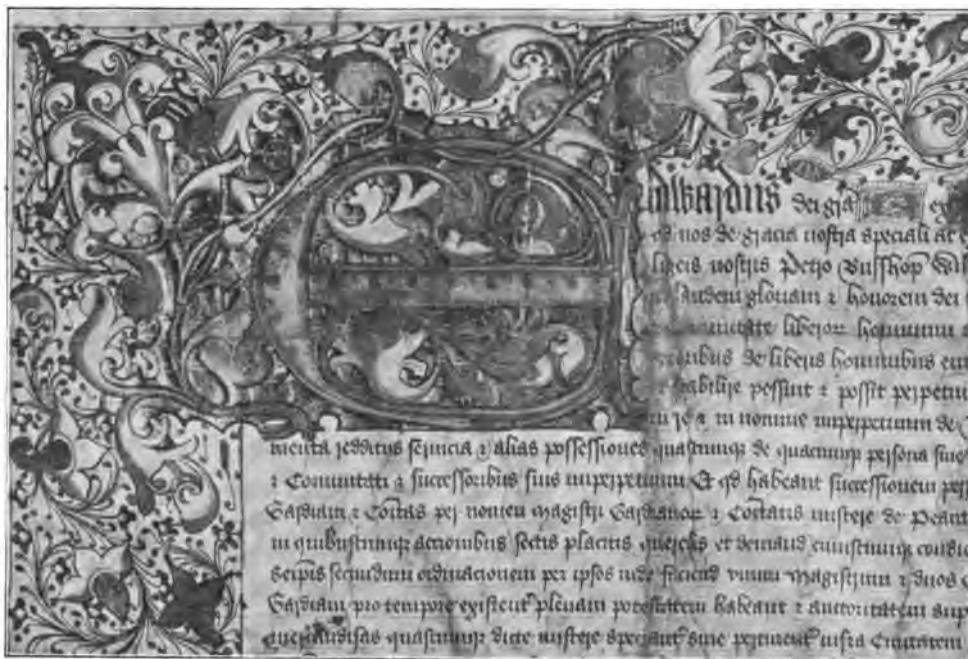 Edwardus dei gra
nos de gracia nostra speciali ac
ligeis nostris Petro Bisshop
laudem gloriam ⁊ honorem dei
liberor hominum
de liberis hominibus
stabilire possint ⁊ possit perpetu
re ⁊ in nomine imperpetuum de
menta redditus servicia ⁊ alias possessiones quascumque de quacumque persona sive
⁊ Comunitati ⁊ successoribus suis imperpetuum Et qd habeant successionem per
Gardiani ⁊ Coitas per nomen magistri Gardianor ⁊ Coitatis mistere de
in quibuscumque actionibus sectis placitis querelis et demand cuiuscumque condic
secundum ordinacionem per ipsos inde faciend unum magistrum ⁊ duos
Gardiani pro tempore existent plenam potestatem habeant ⁊ auctoritatem sup
quascumque dicte mistere spectant sive pertinent infra Civitatem